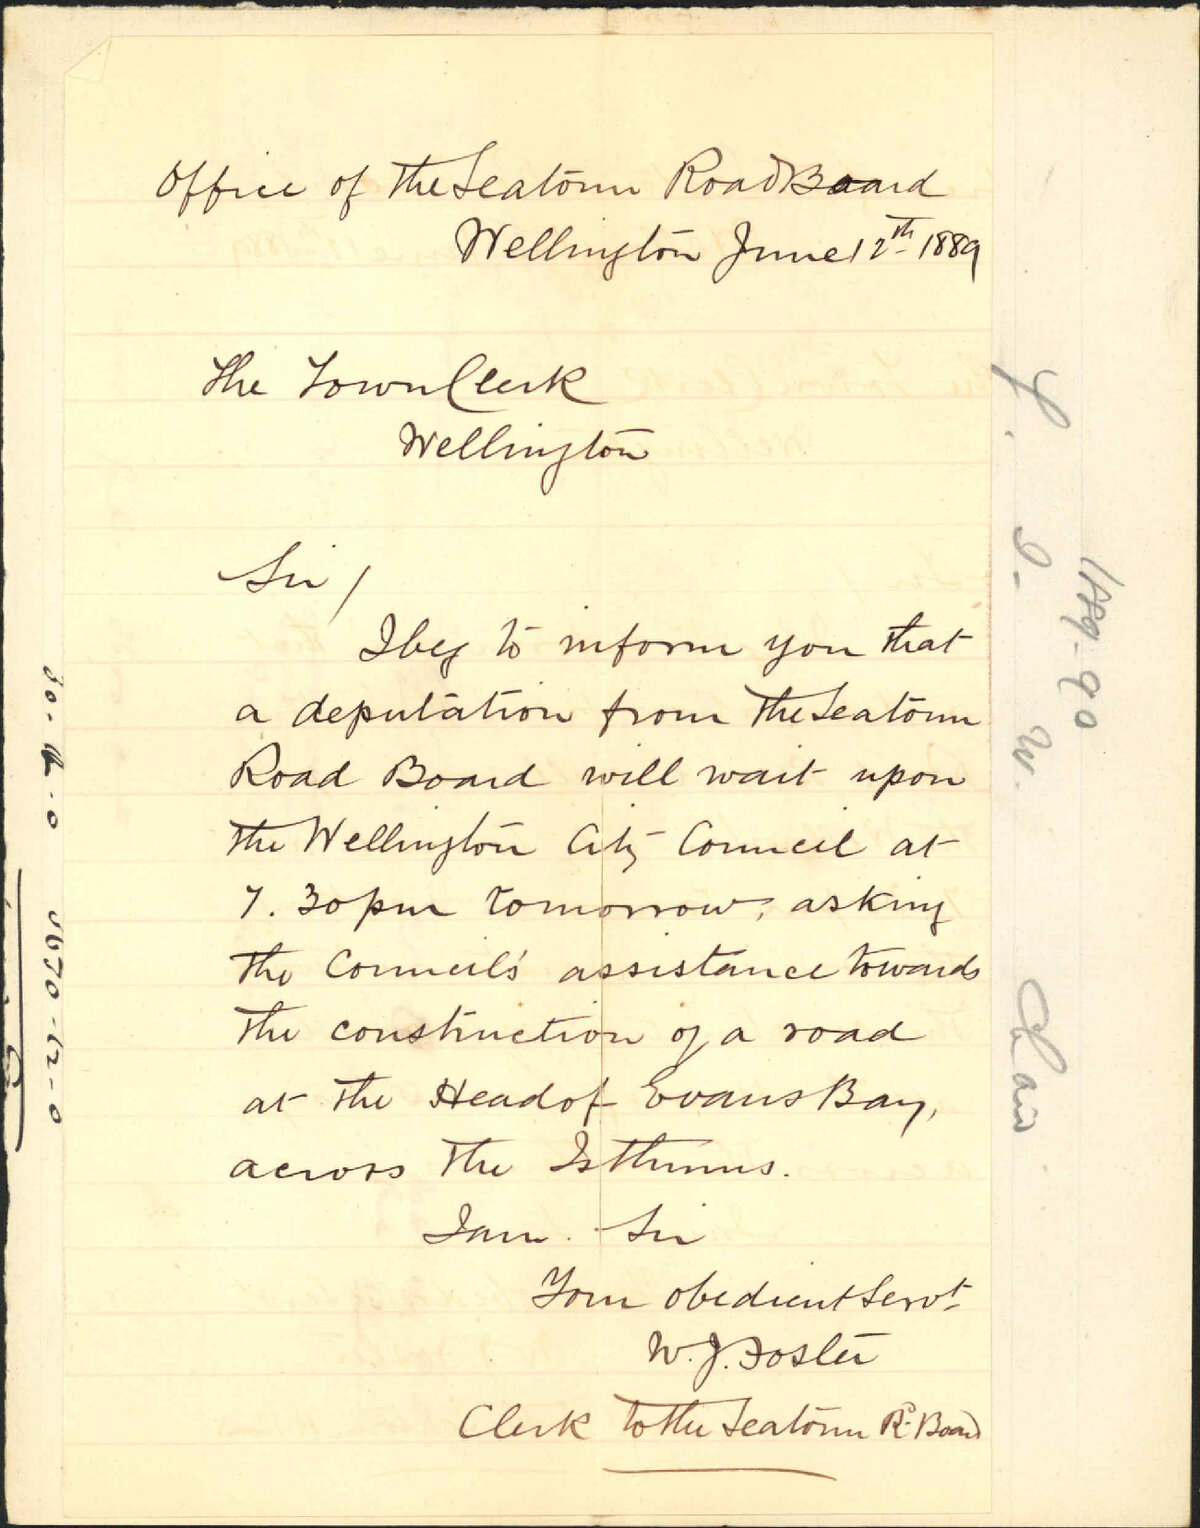 Office of the Seatoun Road Board
Wellington June 12th 1889
The Town Clerk
Wellington
Sir/
I beg to inform you that
a deputation from the Seatoun
Road Board will wait upon
the Wellington City Council at
7.30 pm tomorrow, asking
the Council's assistance towards
the construction of a road
at the Head of Evans Bay,
across the Isthmus.
I am. Sir
Your obedient Servt
W. J. Foster
Clerk to the Seatoun Rd Board
1889-90